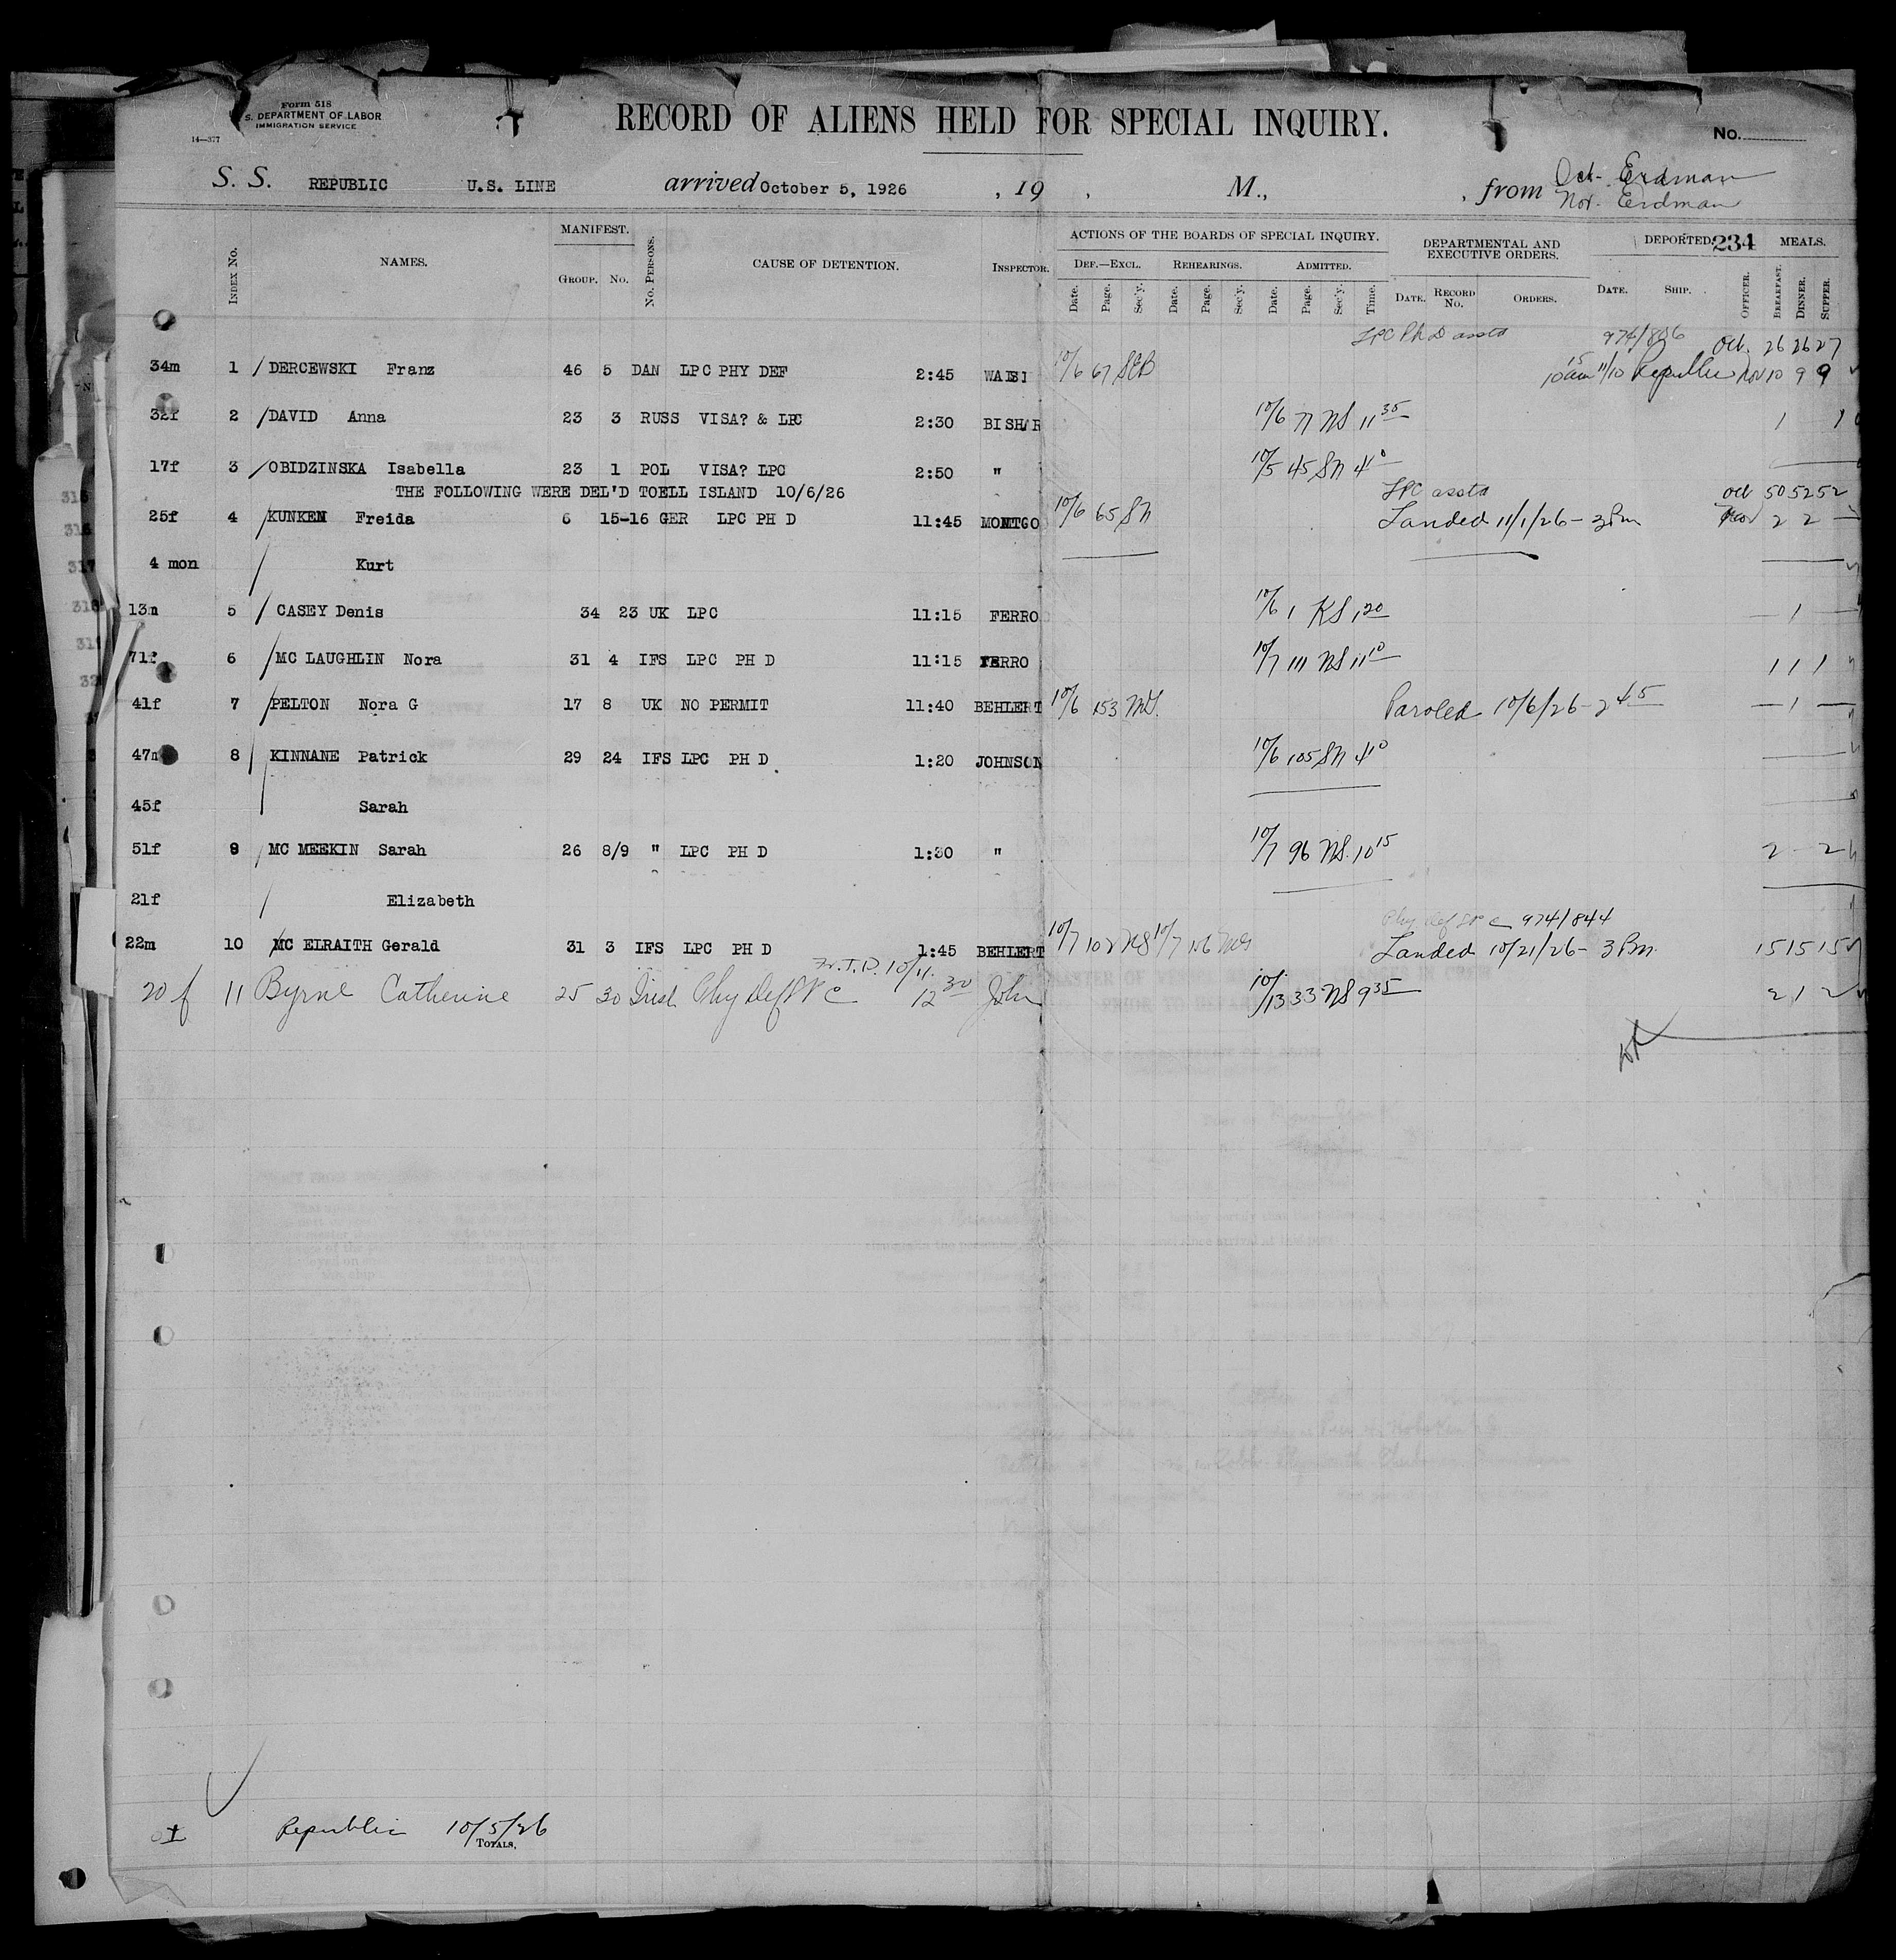 Form 518
S. DEPARTMENT OF LABOR
IMMIGRATION SERVICE
14—377
RECORD OF ALIENS HELD FOR SPECIAL INQUIRY.
No.
S. S. REPUBLIC U.S. LINE arrived October 5, 1926 , 19 , M., , from Oct- Erdman
Nov. Erdman
INDEX NO. NAMES. MANIFEST. GROUP. NO. NO. PERSONS. CAUSE OF DETENTION. INSPECTOR. ACTIONS OF THE BOARDS OF SPECIAL INQUIRY. DEPARTMENTAL AND EXECUTIVE ORDERS. DEPORTED. 234 MEALS.
DEF.—EXCL. REHEARINGS. ADMITTED.
Date. Page. Sec'y. Date. Page. Sec'y. Date. Page. Sec'y. Time. DATE. RECORD NO. ORDERS. DATE. SHIP. OFFICER. BREAKFAST. DINNER. SUPPER.
LPC Ph D asstd 974/806 Oct. 26 26 27
34m 1 / DERCEWSKI Franz 46 5 DAN LPC PHY DEF 2:45 10/6 67 SEB 11/10 Republic Nov 10 9 9
32f 2 / DAVID Anna 23 3 RUSS VISA? & LPC 2:30 BISHAR 10/6 77 NS 11 35 1 1
17f 3 / OBIDZINSKA Isabella 23 1 POL VISA? LPC 2:50 " 10/5 45 SN 4
THE FOLLOWING WERE DEL'D TOELL ISLAND 10/6/26 LPC asstd Oct 50 52 52
25f 4 KUNKEN Freida 6 15-16 GER LPC PH D 11:45 MONTGO 10/6 65 SN Landed 11/1/26 - 3 Pm Nov 2 2 —
4 mon / Kurt
13m 5 / CASEY Denis 34 23 UK LPC 11:15 FERRO 10/6 1 KS 1 20 — 1 —
71f 6 / MC LAUGHLIN Nora 31 4 IFS LPC PH D 11:15 FERRO 10/7 111 NS 11 10 1 1 1
41f 7 / PELTON Nora G 17 8 UK NO PERMIT 11:40 BEHLERT 10/6 153 Paroled 10/6/26 - 2 45 — 1 —
47m 8 / KINNANE Patrick 29 24 IFS LPC PH D 1:20 JOHNSON 10/6 105 SN 4 10
45f Sarah
51f 9 / MC MEEKIN Sarah 26 8/9 " LPC PH D 1:30 " 10/7 96 NS 10 15 2 - 2
21f / Elizabeth
Phy def LPC 974/844
22m 10 / MC ELRAITH Gerald 31 3 IFS LPC PH D 1:45 BEHLERT 10/7 102 NS 10/7 106 Landed 10/21/26 - 3 Pm. 15 15 15
10/11.
20 f 11 Byrne Catherine 25 30 Irish Phy Def LPC 12 30 John 10/13 33 NS 9 35 2 1 2
Republic 10/5/26
TOTALS.